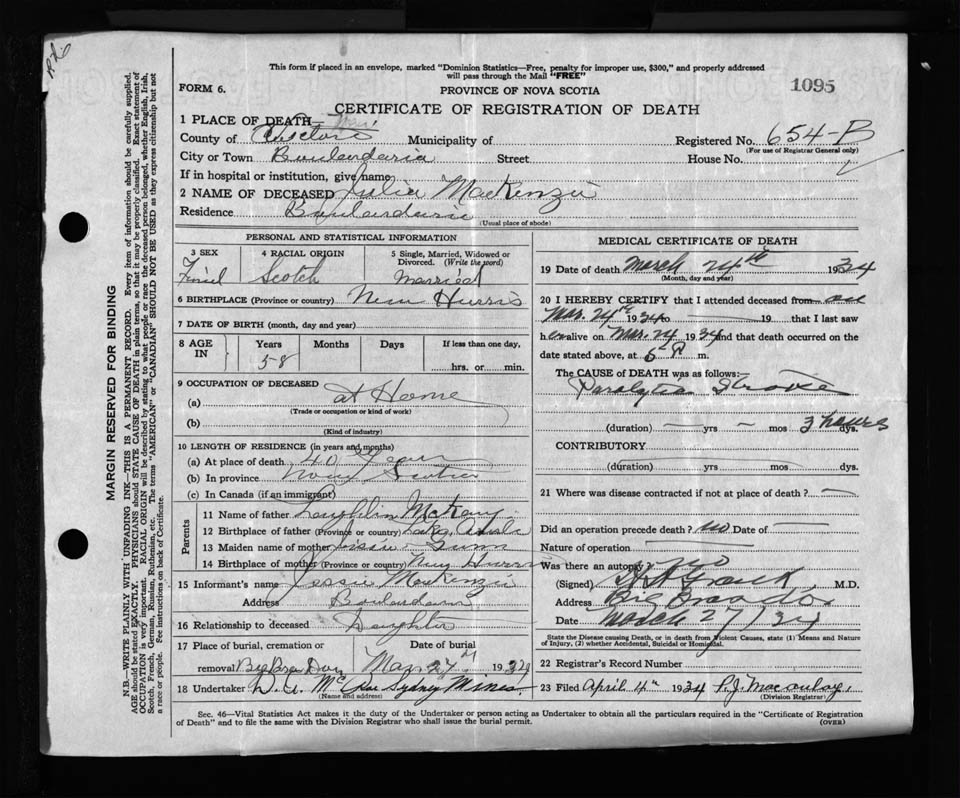 This form if placed in an envelope, marked "Dominion Statistics—Free, penalty for improper use, $300," and properly addressed
will pass through the Mail "FREE"
FORM 6.
PROVINCE OF NOVA SCOTIA
1095
CERTIFICATE OF REGISTRATION OF DEATH
1 PLACE OF DEATH—
County of Victoria Municipality of Registered No. 654-B
(For use of Registrar General only)
City or Town Boulardarie Street House No.
If in hospital or institution, give name
2 NAME OF DECEASED Julia MacKenzie
Residence Boulardarie
(Usual place of abode)
PERSONAL AND STATISTICAL INFORMATION
3 SEX 4 RACIAL ORIGIN 5 Single, Married, Widowed or Divorced. (Write the word)
Scotch Married
6 BIRTHPLACE (Province or country) New Hurris
7 DATE OF BIRTH (month, day and year)
8 AGE IN Years Months Days If less than one day,
58 hrs. or min.
9 OCCUPATION OF DECEASED
(a) at Home
(Trade or occupation or kind of work)
(b)
(Kind of industry)
10 LENGTH OF RESIDENCE (in years and months)
(a) At place of death 40 years
(b) In province Nova Scotia
(c) In Canada (if an immigrant)
Parents
11 Name of father Laughlin McKay
12 Birthplace of father (Province or country) Lake Ainslie
13 Maiden name of mother Jessie
14 Birthplace of mother (Province or country) New Hurris
15 Informant's name Jessie MacKenzie
Address Boulardarie
16 Relationship to deceased Daughter
17 Place of burial, cremation or removal Date of burial
Big Bras Dor Mar 27 1934
18 Undertaker D. A. McRae Sydney Mines
(Name and address)
MEDICAL CERTIFICATE OF DEATH
19 Date of death March 24th 1934
(Month, day and year)
20 I HEREBY CERTIFY that I attended deceased from on
Mar. 24th 1934 to — 19 that I last saw
h er alive on Mar. 24 1934 and that death occurred on the
date stated above, at 5 P m.
The CAUSE OF DEATH was as follows:
Paralytic Stroke
(duration) — yrs — mos 3 hours dys.
CONTRIBUTORY
(duration) yrs mos dys.
21 Where was disease contracted if not at place of death? —
Did an operation precede death? no Date of —
Nature of operation —
Was there an autopsy? no
(Signed) M.D.
Address Big Bras dor
Date March 27/34
State the Disease causing Death, or in death from Violent Causes, state (1) Means and Nature
of Injury, (2) whether Accidental, Suicidal or Homicidal.
22 Registrar's Record Number
23 Filed April 4th 1934 P.J. Macaulay,
(Division Registrar)
Sec. 46—Vital Statistics Act makes it the duty of the Undertaker or person acting as Undertaker to obtain all the particulars required in the "Certificate of Registration
of Death" and to file the same with the Division Registrar who shall issue the burial permit.
(OVER)
MARGIN RESERVED FOR BINDING
N.B.—WRITE PLAINLY WITH UNFADING INK—THIS IS A PERMANENT RECORD. Every item of information should be carefully supplied.
AGE should be stated EXACTLY. PHYSICIANS should STATE CAUSE OF DEATH in plain terms, so that it may be properly classified. Exact statement of
OCCUPATION is very important. RACIAL ORIGIN will be described by stating to what people or race the deceased person belonged, whether English, Irish,
Scotch, French, German, Russian, Ruthenian, etc. The terms "AMERICAN" or "CANADIAN" SHOULD NOT BE USED as they express citizenship but not
a race or people. Fee instructions on back of Certificate.